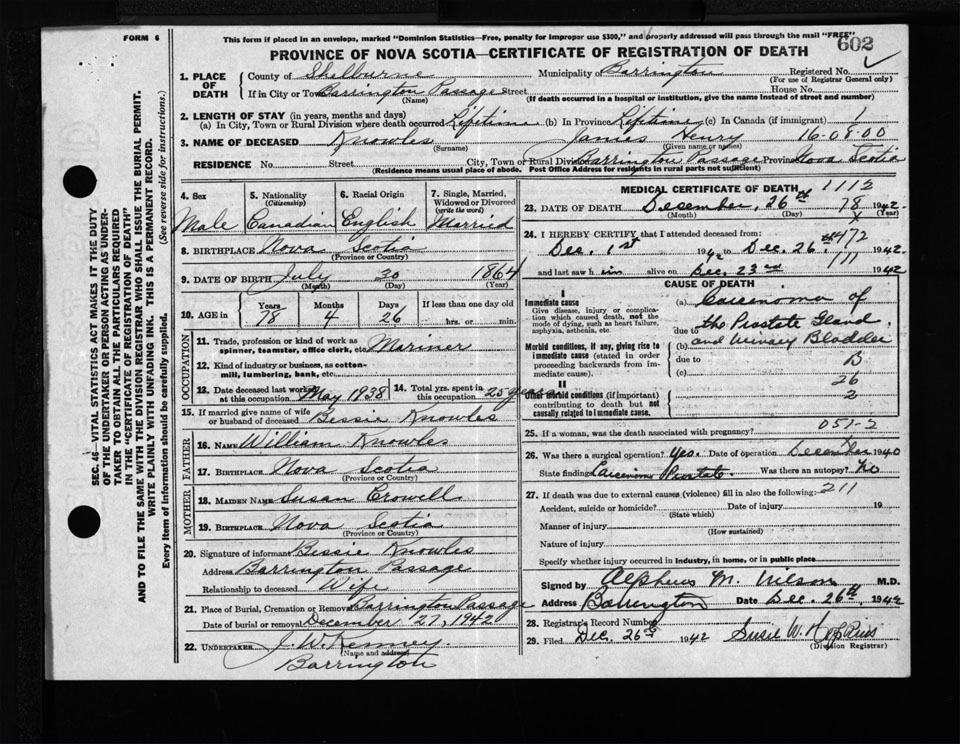 FORM 6
This form if placed in an envelope, marked "Dominion Statistics—Free, penalty for improper use $300," and properly addressed will pass through the mail "FREE"
PROVINCE OF NOVA SCOTIA—CERTIFICATE OF REGISTRATION OF DEATH
602
1. PLACE OF DEATH
County of Shelburne Municipality of Barrington Registered No.
(For use of Registrar General only)
If in City or Town Barrington Passage Street House No.
(Name) (If death occurred in a hospital or institution, give the name instead of street and number)
2. LENGTH OF STAY (in years, months and days)
(a) In City, Town or Rural Division where death occurred Lifetime (b) In Province Lifetime (c) In Canada (if immigrant)
3. NAME OF DECEASED Knowles James Henry 16-08-00
(Surname) (Given name or names)
RESIDENCE No. Street City, Town or Rural Division Barrington Passage Province Nova Scotia
(Residence means usual place of abode. Post Office Address for residents in rural parts not sufficient)
4. Sex Male
5. Nationality (Citizenship) Canadian
6. Racial Origin English
7. Single, Married, Widowed or Divorced (write the word) Married
8. BIRTHPLACE Nova Scotia
(Province or Country)
9. DATE OF BIRTH July 30 1864
(Month) (Day) (Year)
10. AGE in Years 78 Months 4 Days 26 If less than one day old hrs. or min.
OCCUPATION
11. Trade, profession or kind of work as spinner, teamster, office clerk, etc. Mariner
12. Kind of industry or business, as cotton-mill, lumbering, bank, etc.
13. Date deceased last worked at this occupation May 1938
14. Total yrs. spent in this occupation 25 yrs
15. If married give name of wife or husband of deceased Bessie Knowles
FATHER
16. NAME William Knowles
17. BIRTHPLACE Nova Scotia
(Province or Country)
MOTHER
18. MAIDEN NAME Susan Crowell
19. BIRTHPLACE Nova Scotia
(Province or Country)
20. Signature of informant Bessie Knowles
Address Barrington Passage
Relationship to deceased Wife
21. Place of Burial, Cremation or Removal Barrington Passage
Date of burial or removal December 27, 1942
22. UNDERTAKER J. W. Kenney
(Name and address)
Barrington
MEDICAL CERTIFICATE OF DEATH 1112
23. DATE OF DEATH December, 26th 78 1942
(Month) (Day) (Year)
24. I HEREBY CERTIFY that I attended deceased from:
Dec. 1st 1942 to Dec. 26th 1942
and last saw him alive on Dec. 23rd 1942
CAUSE OF DEATH
I
Immediate cause
Give disease, injury or complication which caused death, not the mode of dying, such as heart failure, asphyxia, asthenia, etc.
(a) Carcinoma of
due to the Prostate Gland
Morbid conditions, if any, giving rise to immediate cause (stated in order proceeding backwards from immediate cause).
(b) and Urinary Bladder
due to B
(c) 26
II
Other morbid conditions (if important) contributing to death but not causally related to immediate cause.
2
25. If a woman, was the death associated with pregnancy? 057-2
26. Was there a surgical operation? Yes. Date of operation December 1940
State finding Carcinoma Prostate. Was there an autopsy? No
27. If death was due to external causes (violence) fill in also the following: 211
Accident, suicide or homicide? Date of injury 19
(State which)
Manner of injury
(How sustained)
Nature of injury
Specify whether injury occurred in industry, in home, or in public place
Signed by Alpheus M. Wilson M.D.
Address Barrington Date Dec. 26th, 1942
28. Registrar's Record Number
29. Filed Dec. 26th 1942 Susie W.
(Division Registrar)
SEC. 46—VITAL STATISTICS ACT MAKES IT THE DUTY
OF THE UNDERTAKER OR PERSON ACTING AS UNDER-
TAKER TO OBTAIN ALL THE PARTICULARS REQUIRED
IN THE "CERTIFICATE OF REGISTRATION OF DEATH"
AND TO FILE THE SAME WITH THE DIVISION REGISTRAR WHO SHALL ISSUE THE BURIAL PERMIT.
WRITE PLAINLY WITH UNFADING INK. THIS IS A PERMANENT RECORD.
Every item of information should be carefully supplied. (See reverse side for instructions.)